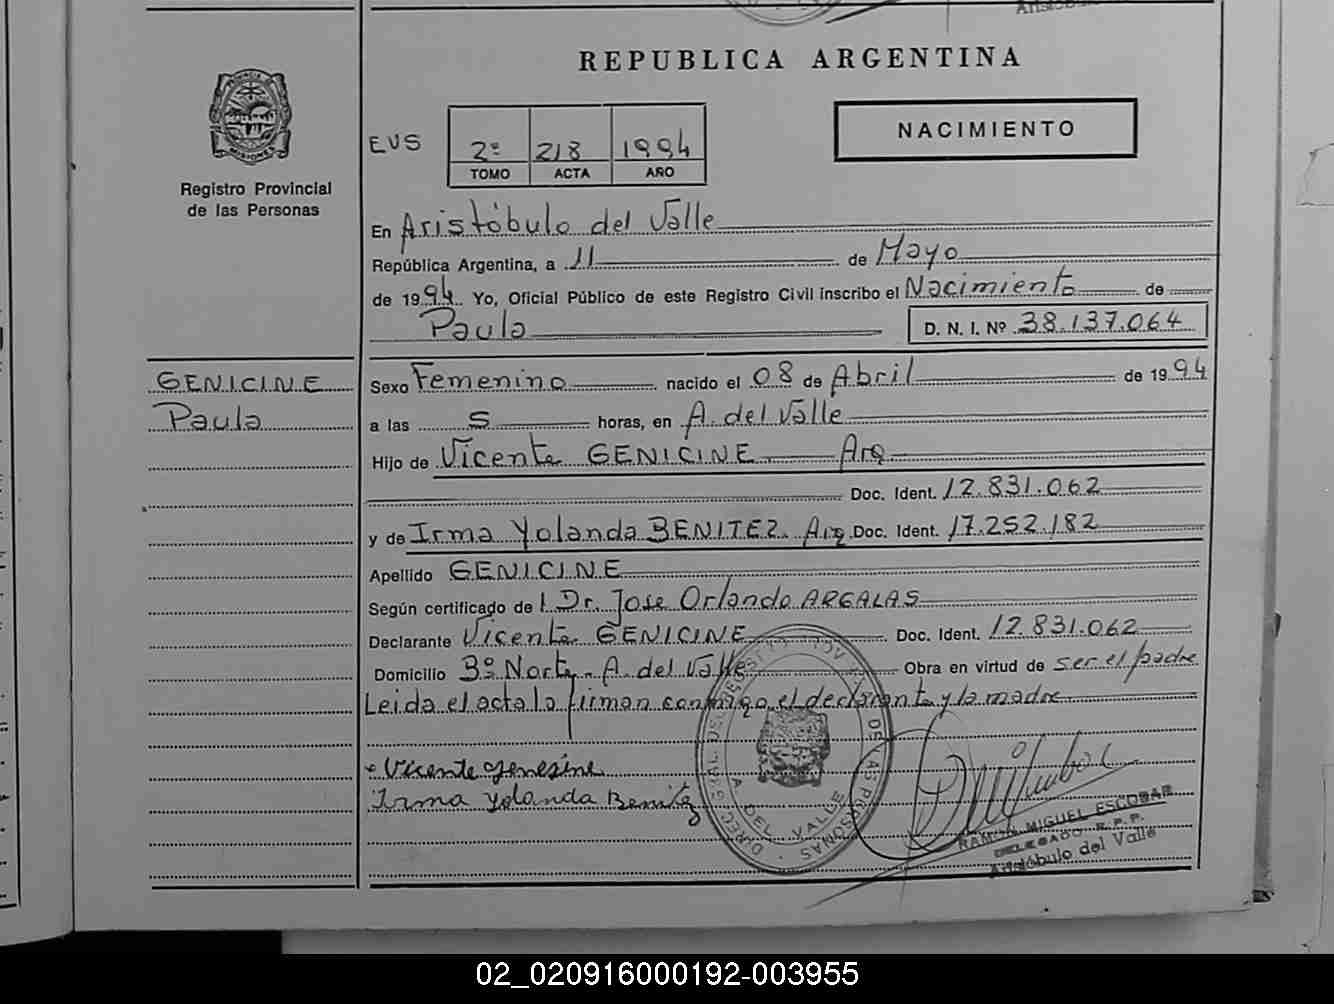 REPUBLICA ARGENTINA
PROVINCIA DE
MISIONES
Registro Provincial
de las Personas
EVS
2º 218 1994
TOMO ACTA AÑO
NACIMIENTO
En Aristóbulo del Valle
República Argentina, a 11 de Mayo
de 1994 Yo, Oficial Público de este Registro Civil inscribo el Nacimiento de
Paula D. N. I. Nº 38.137.064
GENICINE
Paula
Sexo Femenino nacido el 08 de Abril de 1994
a las 5 horas, en A. del Valle
Hijo de Vicente GENICINE Arg
Doc. Ident. 12.831.062
y de Irma Yolanda BENITEZ. Arg Doc. Ident. 17.252.182
Apellido GENICINE
Según certificado de l Dr. Jose Orlando ARGALAS
Declarante Vicente GENICINE Doc. Ident. 12.831.062
Domicilio Bº Norte. A. del Valle Obra en virtud de ser el padre
Leida el acta la firman conmigo el declarante y la madre
Vicente Genesine
Irma Yolanda Benitez
A. DEL VALLE
DE LAS PERSONAS
RAMON MIGUEL ESCOBAR
DELEGADO R.P.P.
Aristóbulo del Valle
02_020916000192-003955